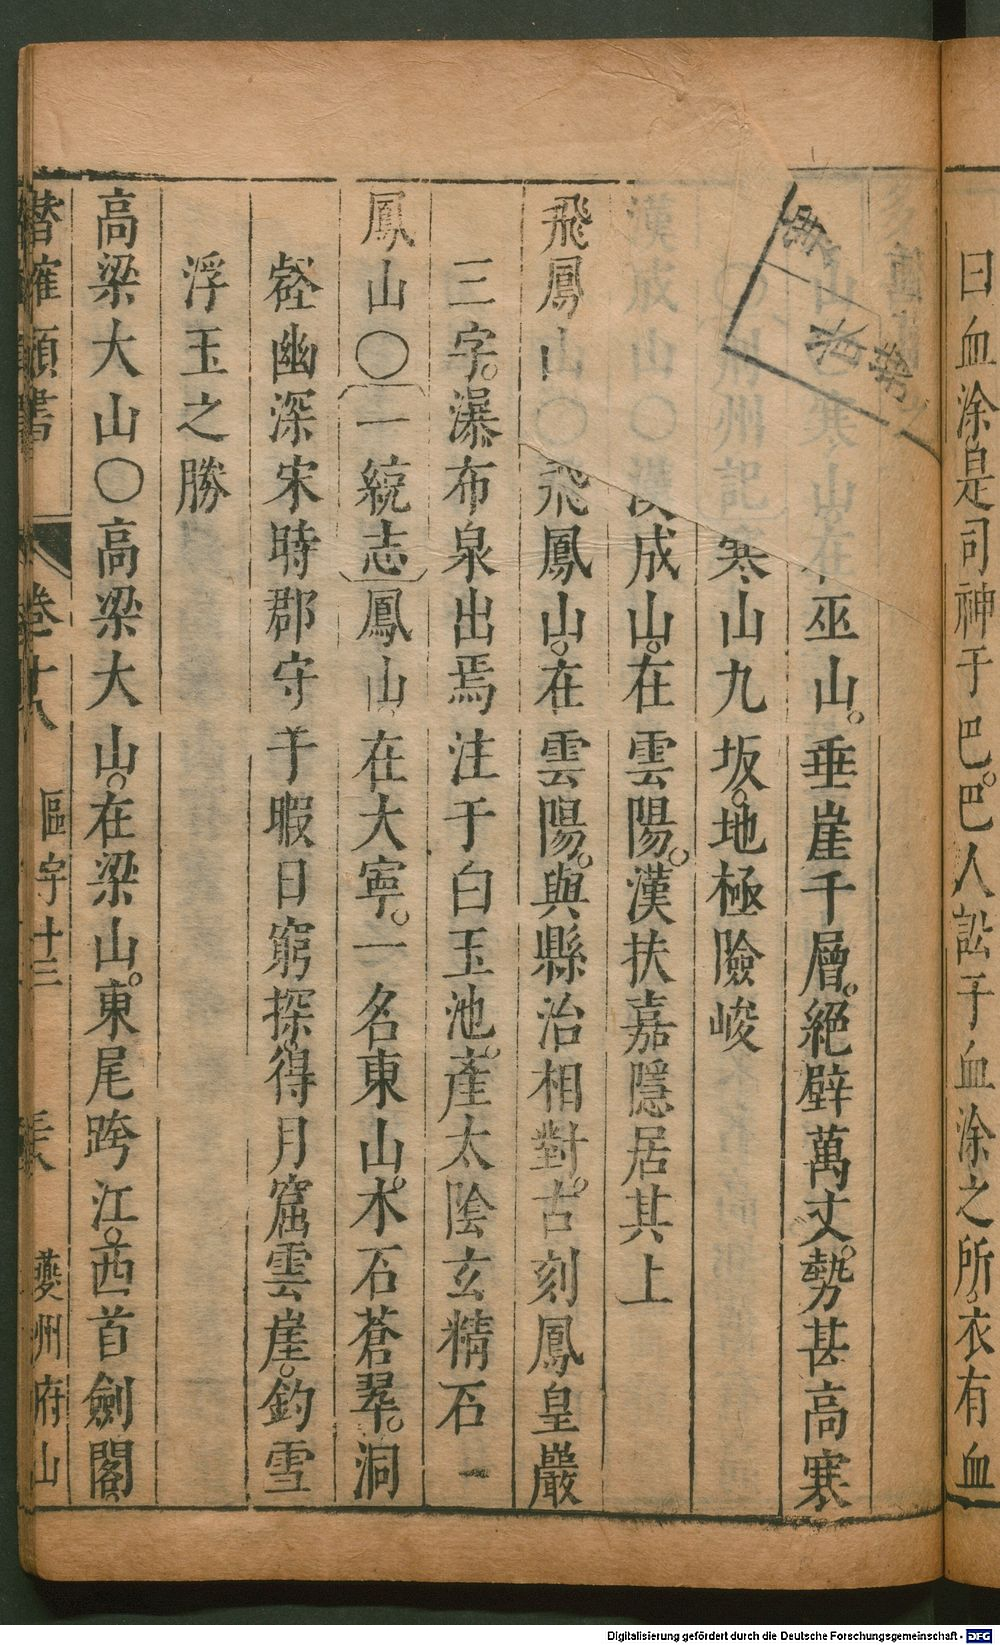 曰血涂。是司神于巴。巴人訟于血涂之所。衣有血
巫山。垂崖千層。絕壁萬丈。勢甚高寒
寒山九坂。地極險峻
成山。在雲陽。漢扶嘉隱居其上
飛鳳山〇飛鳳山。在雲陽。與縣治相對。古刻鳳皇巖
三字。瀑布泉出焉注于白玉池。產太陰玄精石一
鳳山〇一統志鳳山在大寧。一名東山。木石蒼翠。洞
壑幽深宋時郡守于暇日窮探。得月窟雲崖。釣雪
浮玉之勝
高梁大山〇高梁大山。在梁山。東尾跨江。西首劍閣
潛確類書 卷十八 區宇十三 夔州府山
Digitalisierung gefördert durch die Deutsche Forschungsgemeinschaft - DFG